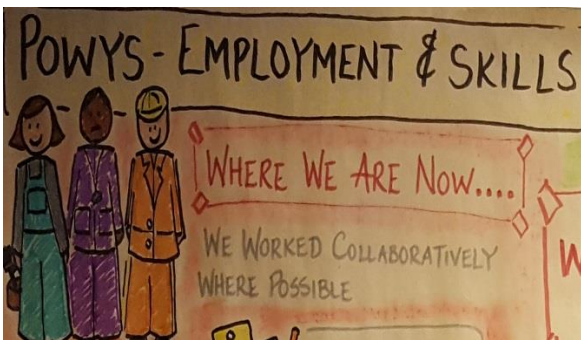 POWYS - EMPLOYMENT & SKILLS
WHERE WE ARE NOW....
WE WORKED COLLABORATIVELY
WHERE POSSIBLE
W